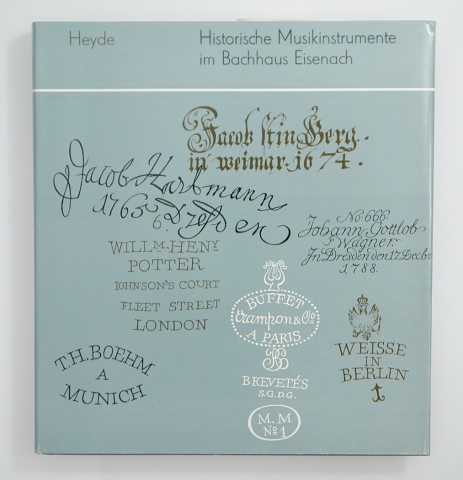 Heyde
Historische Musikinstrumente
im Bachhaus Eisenach
Jacob Stin Berg.
in weimar. 1674.
Jacob Hartmann
1765 Dresden
6.
No 666.
Johann Gottlob
Wagner.
In Dresden den 17. Decb.
1788.
WILLM. HENY
POTTER
JOHNSON'S COURT
FLEET STREET
LONDON
BUFFET
Crampon & Cie
A PARIS
BREVETÉS
S.G.D.G.
M.M
No 1
WEISSE
IN
BERLIN
T.H. BOEHM
A
MUNICH